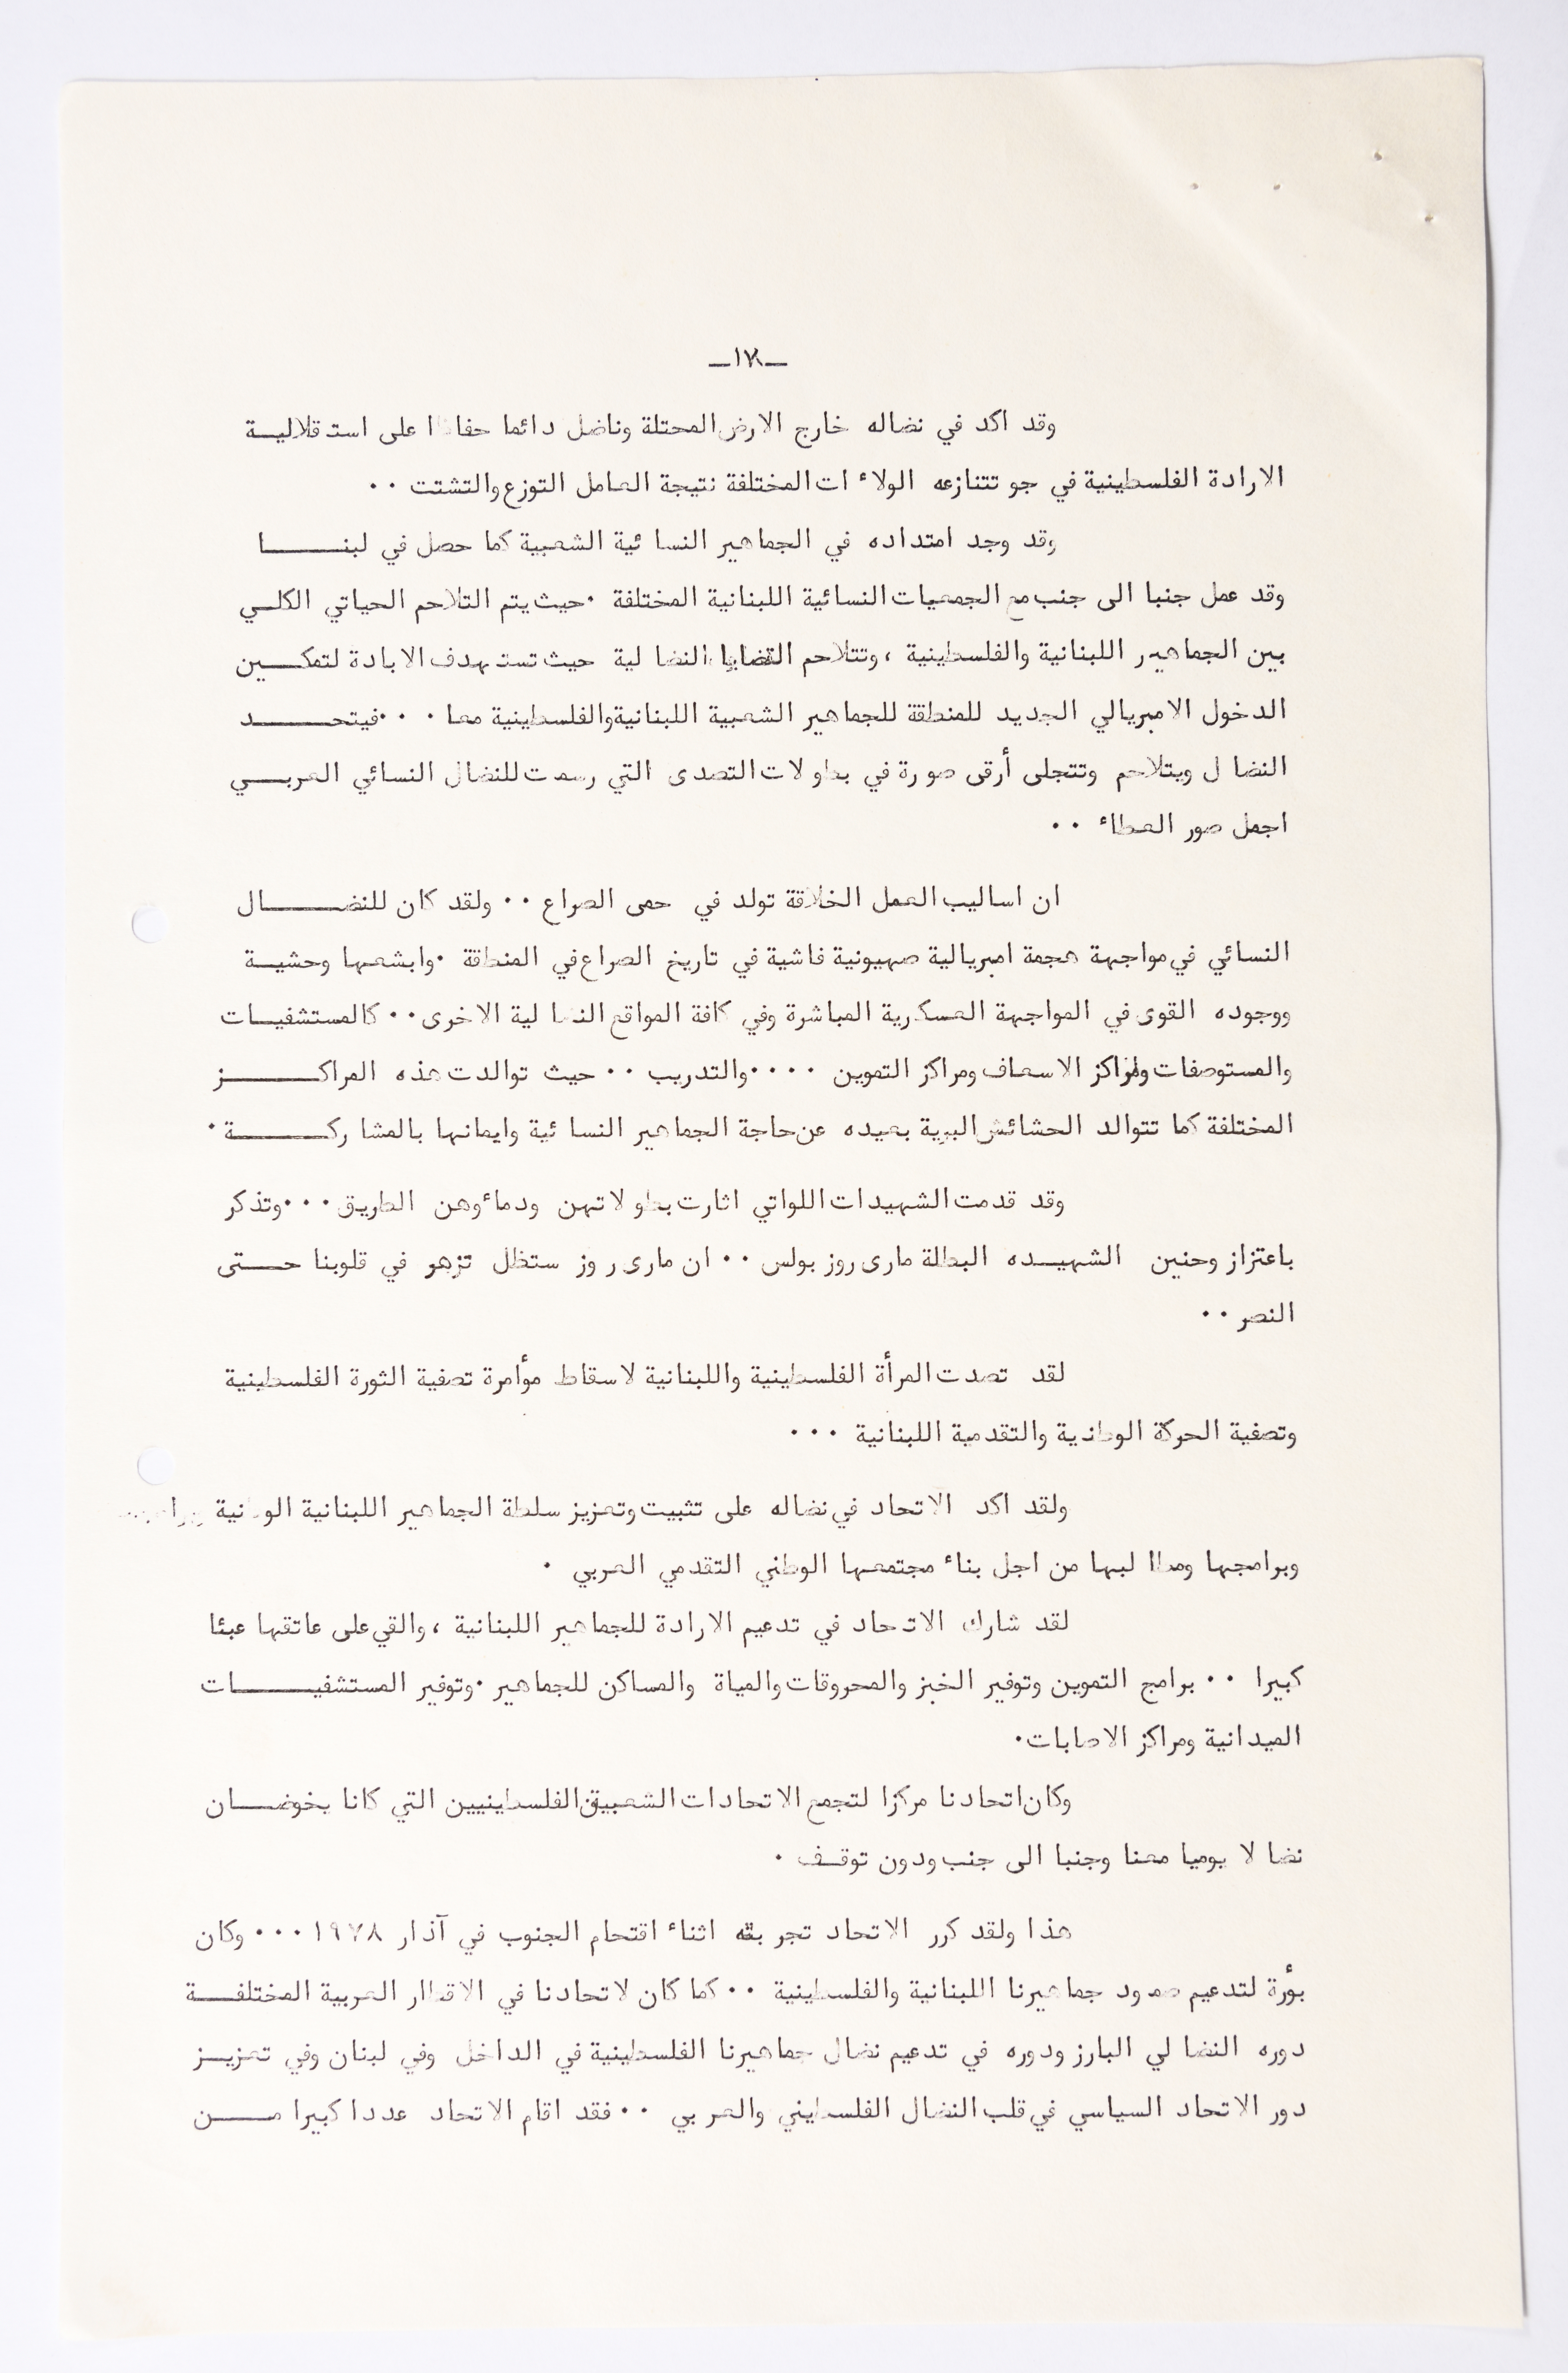 ـ١٧ـ
وقد اكد في نضاله خارج الارض المحتلة وناضل دائما حفاظا على استقلاليـــة
الارادة الفلسطينية في جو تتنازعه الولاءات المختلفة نتيجة العامل التوزع والتشتت ٠٠
وقد وجد امتداده في الجماهير النسائية الشعبية كما حصل في لبنـــــــا
وقد عمل جنبا الى جنب مع الجمعيات النسائية اللبنانية المختلفة ٠حيث يتم التلاحم الحياتي الكلــي
بين الجماهير اللبنانية والفلسطينية ، وتتلاحم القضايا النضالية حيث تستهدف الابادة لتمكــــين
الدخول الامبريالي الجديد للمنطقة للجماهير الشعبية اللبنانية والفلسطينية معا ٠٠٠فيتحـــــــد
النضال ويتلاحم وتتجلى أرقى صورة في بطولات التصدى التي رسمت للنضال النسائي العربــــي
اجمل صور العطاء ٠٠
ان اساليب العمل الخلاقة تولد في حمى الصراع ٠٠ ولقد كان للنضـــــــال
النسائي في مواجهة هجمة امبريالية صهيونية فاشية في تاريخ الصراع في المنطقة ٠وابشعها وحشيـــة
ووجوده القوى في المواجهة العسكرية المباشرة وفي كافة المواقع النضالية الاخرى ٠٠ كالمستشفيــات
والمستوصفات ومراكز الاسعاف ومراكز التموين ٠٠٠٠والتدريب ٠٠ حيث توالدت هذه المراكـــــــــز
المختلفة كما تتوالد الحشائش البرية بعيده عن حاجة الجماهير النسائية وايمانها بالمشاركـــــــــة ٠
وقد قدمت الشهيدات اللواتي اثارت بطولاتهن ودماءوهن الطريق ٠٠٠وتذكر
باعتزاز وحنين الشهيــده البطلة مارى روز بولس ٠٠ ان مارى روز ستظل تزهر في قلوبنا حـــتى
النصر ٠٠
لقد تصدت المرأة الفلسطينية واللبنانية لاسقاط مؤامرة تصفية الثورة الفلسطينية
وتصفية الحركة الوطنية والتقدمية اللبنانية ٠٠٠
ولقد اكد الاتحاد في نضاله على تثبيت وتعزيز سلطة الجماهير اللبنانية الوطنية
وبرامجها ومطالبها من اجل بناء مجتمعها الوطني التقدمي العربي ٠
لقد شارك الاتحاد في تدعيم الارادة للجماهير اللبنانية ، والقي على عاتقها عبئا
كبيرا ٠٠ برامج التموين وتوفير الخبز والمحروقات والمياة والمساكن للجماهير ٠وتوفير المستشفيـــــــات
الميدانية ومراكز الاصابات٠
وكان اتحادنا مركزا لتجمع الاتحادات الشعبية الفلسطينيين التي كانا يخوضــــان
نضالا يوميا معنا وجنبا الى جنب ودون توقــف ٠
هذا ولقد كرر الاتحاد تجربته اثناء اقتحام الجنوب في آذار ١٩٧٨ ٠٠٠ وكان
بؤرة لتدعيم صمود جماهيرنا اللبنانية والفلسطينية ٠٠ كما كان لاتحادنا في الاقطار العربية المختلفــــة
دوره النضالي البارز ودوره في تدعيم نضال جماهيرنا الفلسطينية في الداخل وفي لبنان وفي تعزيــــز
دور الاتحاد السياسي في قلب النضال الفلسطيني والعربي ٠٠ فقد اقام الاتحاد عددا كبيرا مــــــن